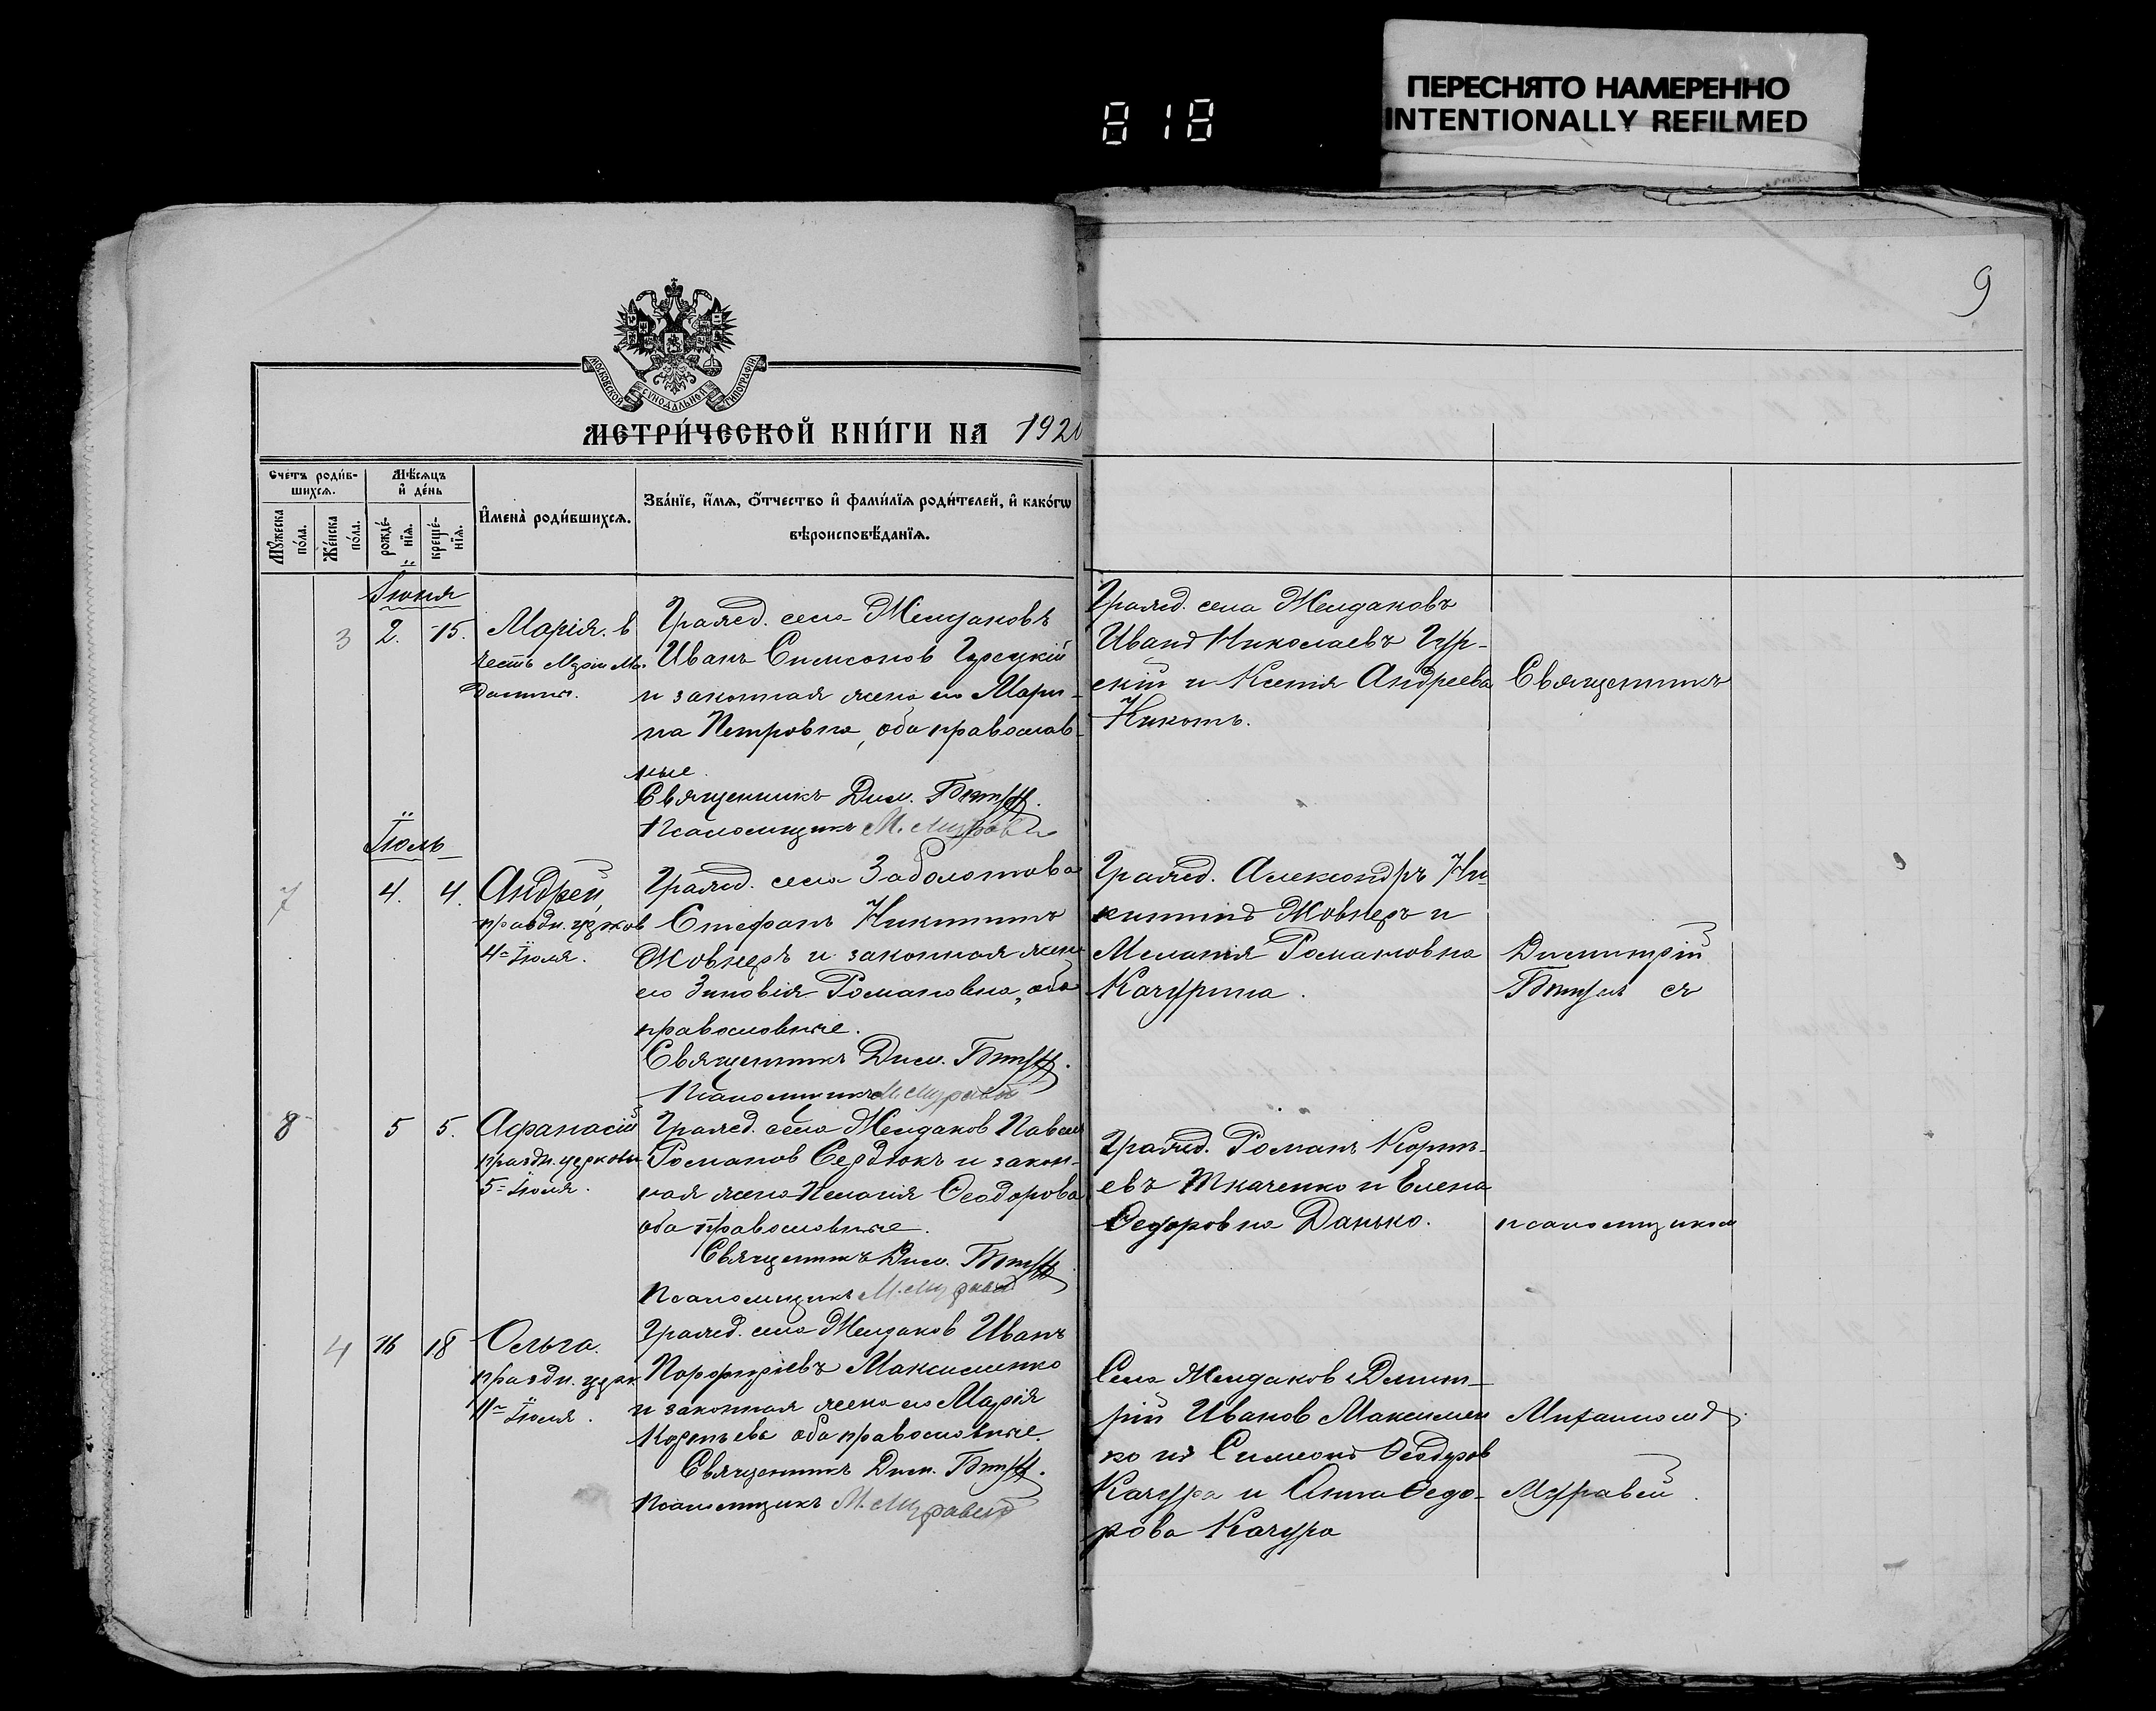 ПЕРЕСНЯТО НАМЕРЕННО
INTENTIONALLY REFILMED
818
9
МОСКОВСКОЙ СѴНОДАЛЬНОЙ ТИПОГРАФІИ
МЕТРИ́ЧЕСКОЙ КНИ́ГИ НА 1920
Счетъ роди́в-
шихсѧ.
Мѣ́сѧцъ
и҆ де́нь
Мꙋ́жеска
по́ла.
Же́нска
по́ла.
рожде́-
нїѧ.
креще́-
нїѧ.
И҆мена̀ роди́вшихсѧ.
Зва́нїе, и҆́мѧ, ѻ҆́тчество и҆ фами́лїѧ роди́телей, и҆ како́гѡ
вѣроисповѣ́данїѧ.
Іюня
3 2. 15. Марія. в
честь Маріи Ма-
далины.
Гражд. села Желдаковъ
Иванъ Симсонов Гурскій
и законная жена его Мари-
на Петровна, оба православ-
ные.
Священникъ Дим.
Псаломщикъ М. Муравей
Гражд. села Желдаковъ
Иванъ Николаевъ Гур-
скій и Ксенія Андреева
Священникъ
Іюль
7 4. 4. Андрей,
праздн. церков
4-го Іюля.
Гражд. села Заболотова
Стефанъ Никитинъ
Жовнеръ и законная жена
его Зиновія Романовна, оба
православные.
Священникъ Дим.
Псаломщикъ М. Муравей
Гражд. Александръ Ни-
китинъ Жовнеръ и
Меланія Романовна
Качурина.
Димитрій
8 5 5. Афанасій
праздн. церковн
5-го Іюля.
Гражд. села Желдаков Павелъ
Романов Сердюкъ и закон-
ная жена Пелагія Феодорова
оба православные.
Священникъ Дим.
Псаломщикъ М. Муравей
Гражд. Романъ Корни-
евъ Ткаченко и Елена
Федоровна Данько.
псаломщиком
4 16 18 Ольга.
праздн. церк.
11-го Іюля.
Гражд. села Желдаков Иванъ
Порфиріевъ Максименко
и законная жена его Марія
Корньева оба православные.
Священникъ Дим.
Псаломщикъ М. Муравей
Села Желдаков Димит-
рій Иванов Максимен
ко и Симеонъ Феодоров
Качура и Анна Федо-
рова Качура
Михаилъ
Муравей.